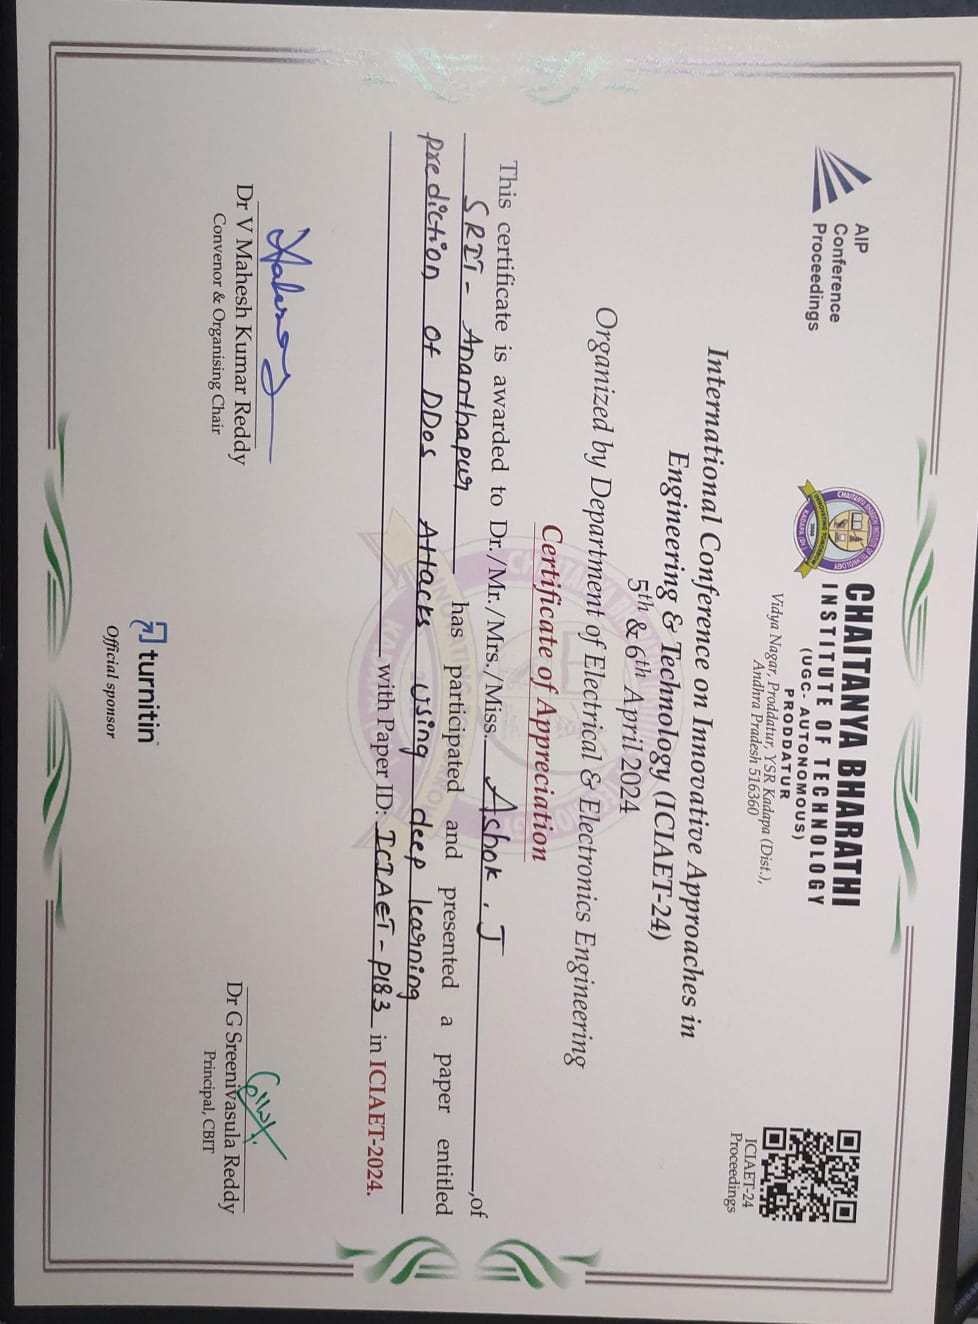 AIP
Conference
Proceedings
CHAITANYA BHARATHI
INSTITUTE OF TECHNOLOGY
(UGC- AUTONOMOUS)
PRODDATUR
Vidya Nagar, Proddatur, YSR Kadapa (Dist.),
Andhra Pradesh 516360
CHAITANYA BHARATHI INSTITUTE OF TECHNOLOGY
INNOVATING TOMORROW
2008
KADAPA (Dt.)
ICIAET-24
Proceedings
International Conference on Innovative Approaches in
Engineering & Technology (ICIAET-24)
5th & 6th April 2024
Organized by Department of Electrical & Electronics Engineering
Certificate of Appreciation
This certificate is awarded to Dr./Mr./Mrs./Miss. Ashok . J ,of
SRIT - Ananthapur has participated and presented a paper entitled
prediction Of DDos Attacks using deep learning
with Paper ID: ICIAET - P183 in ICIAET-2024.
Dr V Mahesh Kumar Reddy
Convenor & Organising Chair
Dr G Sreenivasula Reddy
Principal, CBIT
turnitin
Official sponsor